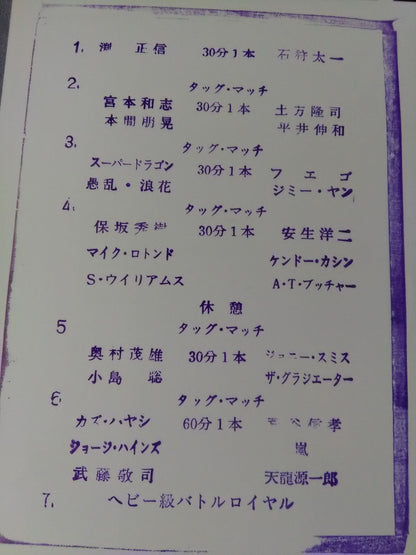 1. 渕 正信 30分1本 石狩太一
2. タッグ・マッチ
宮本和志 30分1本 土方隆司
本間朋晃 平井伸和
3. タッグ・マッチ
スーパードラゴン 30分1本 フエゴ
愚乱・浪花 ジミー・ヤン
4. タッグ・マッチ
保坂秀樹 30分1本 安生洋二
マイク・ロトンド ケンドー・カシン
S・ウイリアムス A・T・ブッチャー
休憩
5 タッグ・マッチ
奥村茂雄 30分1本 ジョニー・スミス
小島 聡 ザ・グラジエーター
6 タッグ・マッチ
カズ・ハヤシ 60分1本 孝
ジョージ・ハインズ 嵐
武藤敬司 天龍源一郎
7. ヘビー級バトルロイヤル